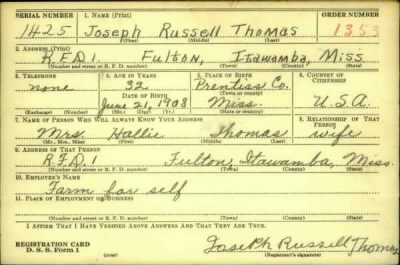 SERIAL NUMBER 1. NAME (Print) ORDER NUMBER
1425 Joseph Russell Thomas 1353
(First) (Middle) (Last)
2. ADDRESS (Print)
R.F.D.1 Fulton, Itawamba, Miss.
(Number and street or R. F. D. number) (Town) (County) (State)
3. TELEPHONE 4. AGE IN YEARS 5. PLACE OF BIRTH 6. COUNTRY OF CITIZENSHIP
none 32 Prentiss Co.
DATE OF BIRTH (Town or county)
June 21, 1908 Miss. U.S.A.
(Exchange) (Number) (Mo.) (Day) (Yr.) (State or country)
7. NAME OF PERSON WHO WILL ALWAYS KNOW YOUR ADDRESS 8. RELATIONSHIP OF THAT PERSON
Mrs. Hallie Thomas wife
(Mr., Mrs., Miss) (First) (Middle) (Last)
9. ADDRESS OF THAT PERSON
R.F.D.1 Fulton, Itawamba, Miss.
(Number and street or R. F. D. number) (Town) (County) (State)
10. EMPLOYER'S NAME
Farm for self
11. PLACE OF EMPLOYMENT OR BUSINESS
(Number and street or R. F. D. number) (Town) (County) (State)
I AFFIRM THAT I HAVE VERIFIED ABOVE ANSWERS AND THAT THEY ARE TRUE.
REGISTRATION CARD
D. S. S. Form 1 Joseph Russell Thomas
(Registrant's signature)